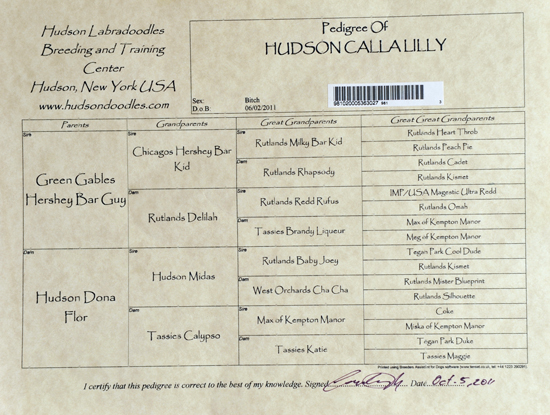 Hudson Labradoodles
Breeding and Training
Center
Hudson, New York USA
www.hudsondoodles.com
Pedigree Of
HUDSON CALLA LILLY
Sex: Bitch
D.o.B: 06/02/2011
Parents Grandparents Great Grandparents Great Great Grandparents
Sire
Green Gables
Hershey Bar Guy
Dam
Hudson Dona
Flor
Sire
Chicagos Hershey Bar
Kid
Dam
Rutlands Delilah
Sire
Hudson Midas
Dam
Tassies Calypso
Sire
Rutlands Milky Bar Kid
Dam
Rutlands Rhapsody
Sire
Rutlands Redd Rufus
Dam
Tassies Brandy Liqueur
Sire
Rutlands Baby Joey
Dam
West Orchards Cha Cha
Sire
Max of Kempton Manor
Dam
Tassies Katie
Rutlands Heart Throb
Rutlands Peach Pie
Rutlands Cadet
Rutlands Kismet
IMP/USA Magestic Ultra Redd
Rutlands Omah
Max of Kempton Manor
Meg of Kempton Manor
Tegan Park Cool Dude
Rutlands Kismet
Rutlands Mister Blueprint
Rutlands Silhouette
Coke
Miska of Kempton Manor
Tegan Park Duke
Tassies Maggie
I certify that this pedigree is correct to the best of my knowledge. Signed Date Oct. 5, 2011